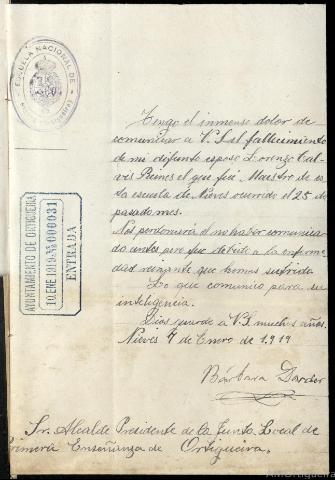 ESCUELA NACIONAL DE
Tengo el inmenso dolor de
comunicar a V. S. el fallecimiento
de mi difunto esposo Lorenzo Cal-
vo el que fué Maestro de es-
ta escuela de Nieves ocurrido el 25 de
pasado mes.
Nos perdonará el no haber comunica-
do antes pero fue debido a la enferme-
dad reinante que hemos sufrido
Lo que comunico para su
inteligencia.
Dios guarde a V. S. muchos años.
Nieves 7 de Enero de 1.919
Bárbara
AYUNTAMIENTO DE ORTIGUEIRA
10.ENE 1919 000031
ENTRADA
Sr. Alcalde Presidente de la Junta Local de
Primera Enseñanza de Ortigueira.
ArmOrtigueira